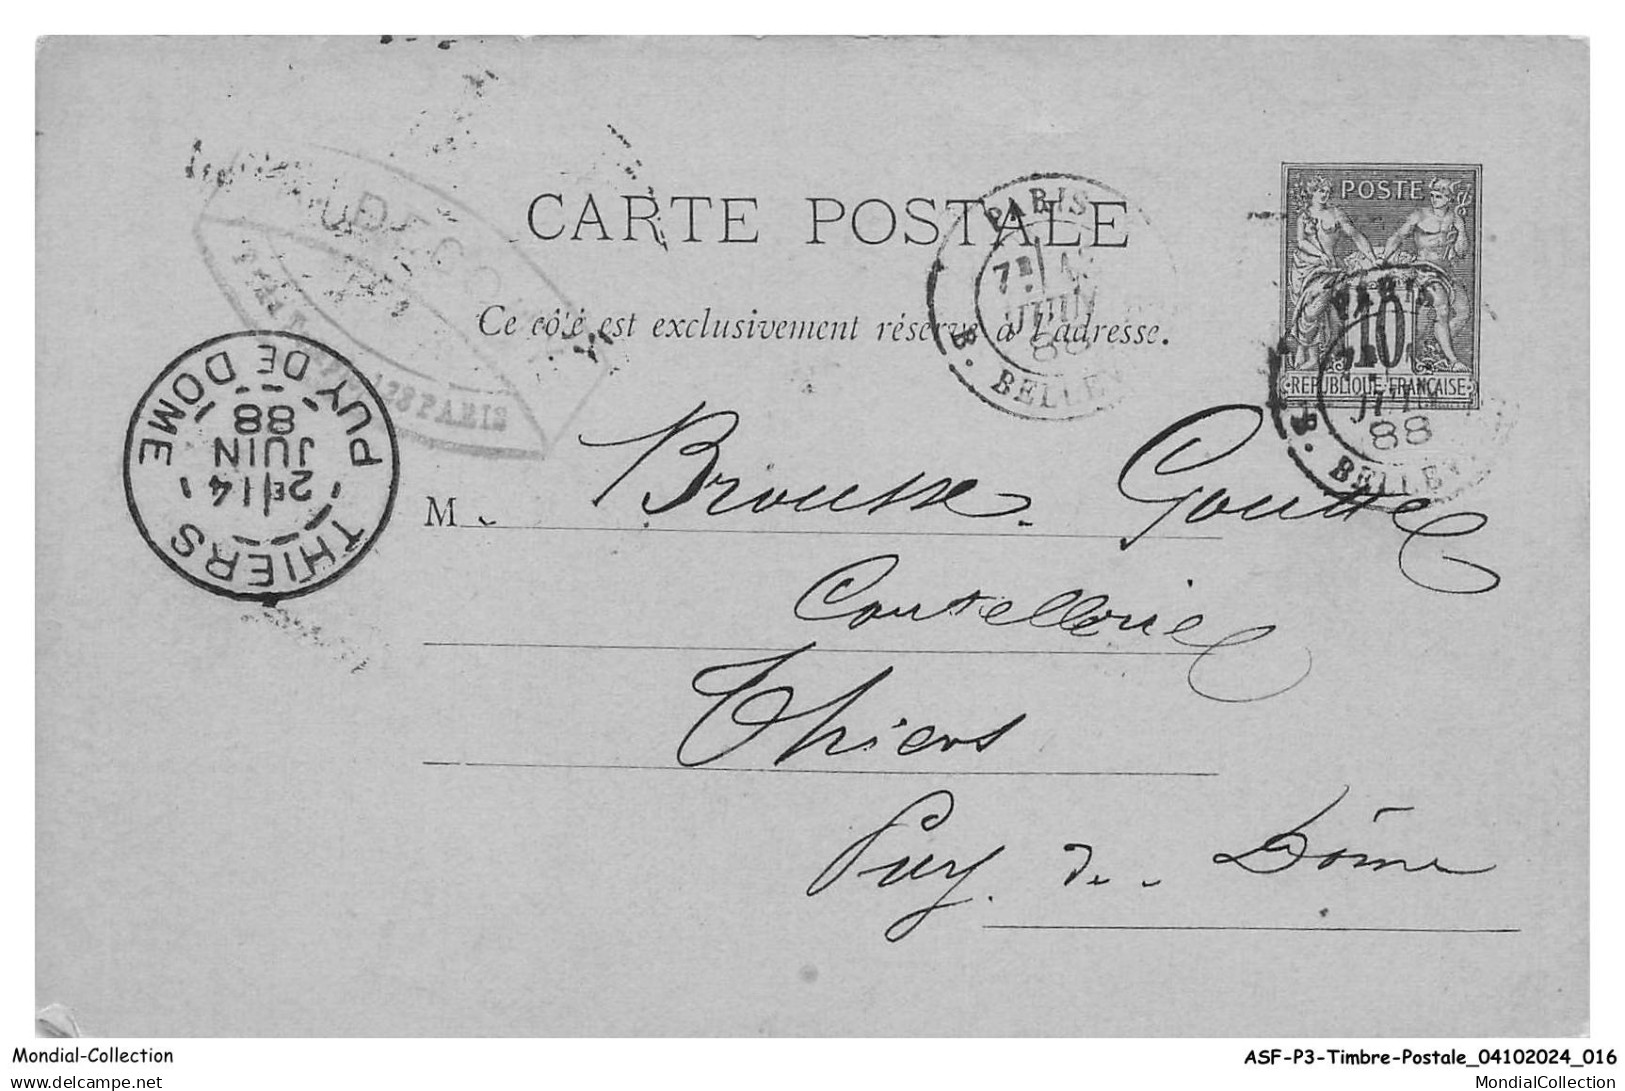 CARTE POSTALE
Ce côté est exclusivement réservé à l'adresse.
POSTE
10
RÉPUBLIQUE FRANÇAISE
PARIS
7E
JUIN
88
B. BELLEV
PARIS
JUIN
88
B. BELLEV
PUY DE DOME
2E 14
JUIN
88
THIERS
PARIS
M Brousse Goutte
Coutellerie
Thiers
Puy de Dôme
Mondial-Collection
ASF-P3-Timbre-Postale_04102024_016
delcampe.net
MondialCollection